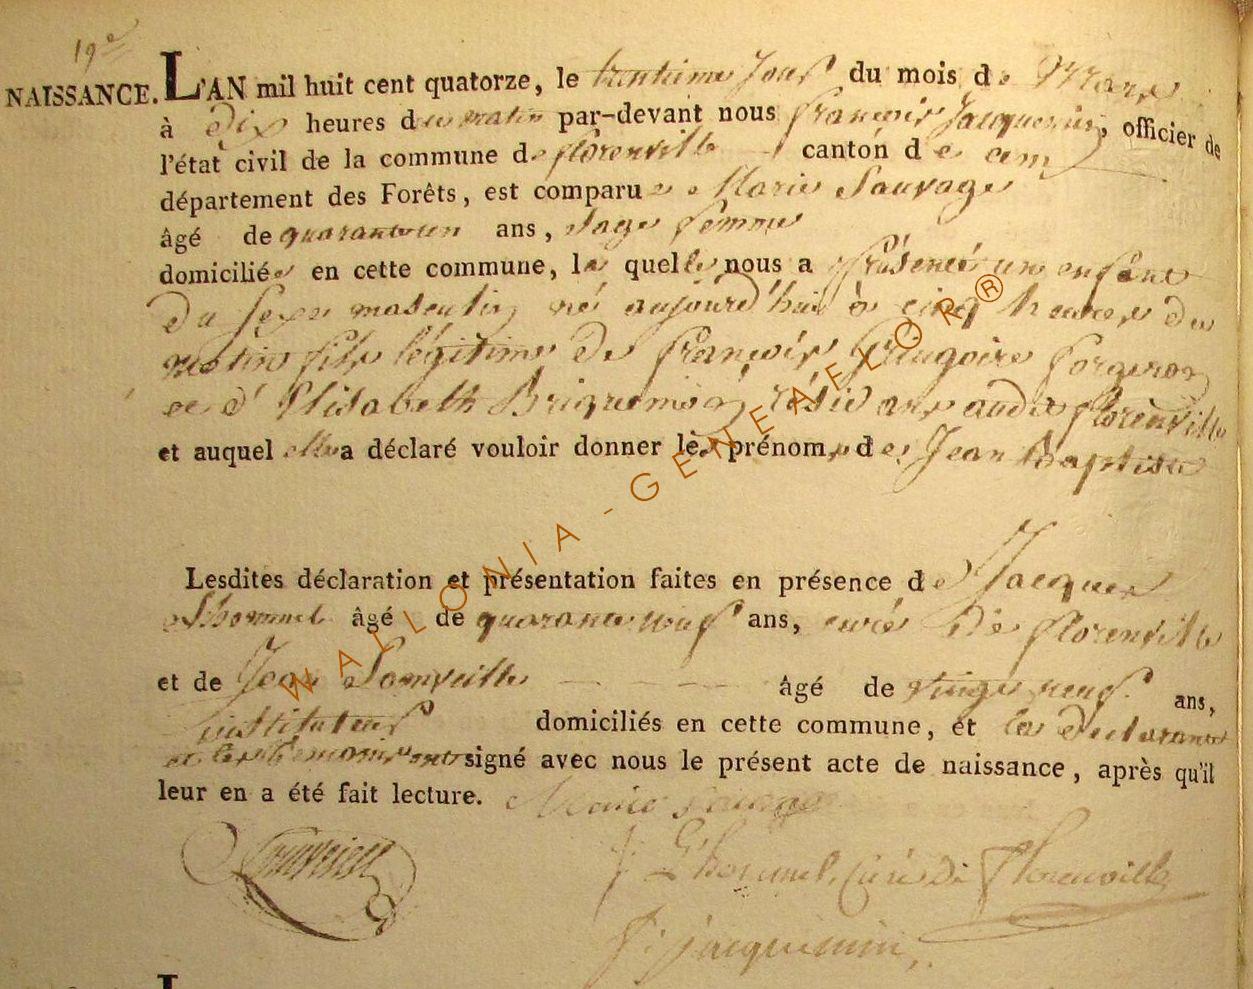 19e
NAISSANCE. L'AN mil huit cent quatorze, le trentieme Jour du mois de Mars
à Dix heures du matin par-devant nous françois Jacquemin, officier de
l'état civil de la commune de florenville canton d e em
département des Forêts, est comparue Marie Sauvage
âgé de quarante un ans, sage femme
domiciliée en cette commune, la quelle nous a présenté un enfant
du sexe masculin né aujourd'hui à cinq heures du
matin fils légitime de françois Gringoire forgeron
et d'Elisabeth Briquemon résidans audit florenville
et auquel elle a déclaré vouloir donner les prénoms de Jean Baptiste
Lesdites déclaration et présentation faites en présence de Jacques
Lhommel âgé de quarante neuf ans, curé de florenville
et de Jean Somveille âgé de vingt neuf ans,
instituteur domiciliés en cette commune, et la déclarante
et les témoins ont signé avec nous le présent acte de naissance, après qu'il
leur en a été fait lecture. Marie Sauvage
J. Lhommel, Curé de Florenville
f: jacquemin
WALLONIA-GENEAFLOR®